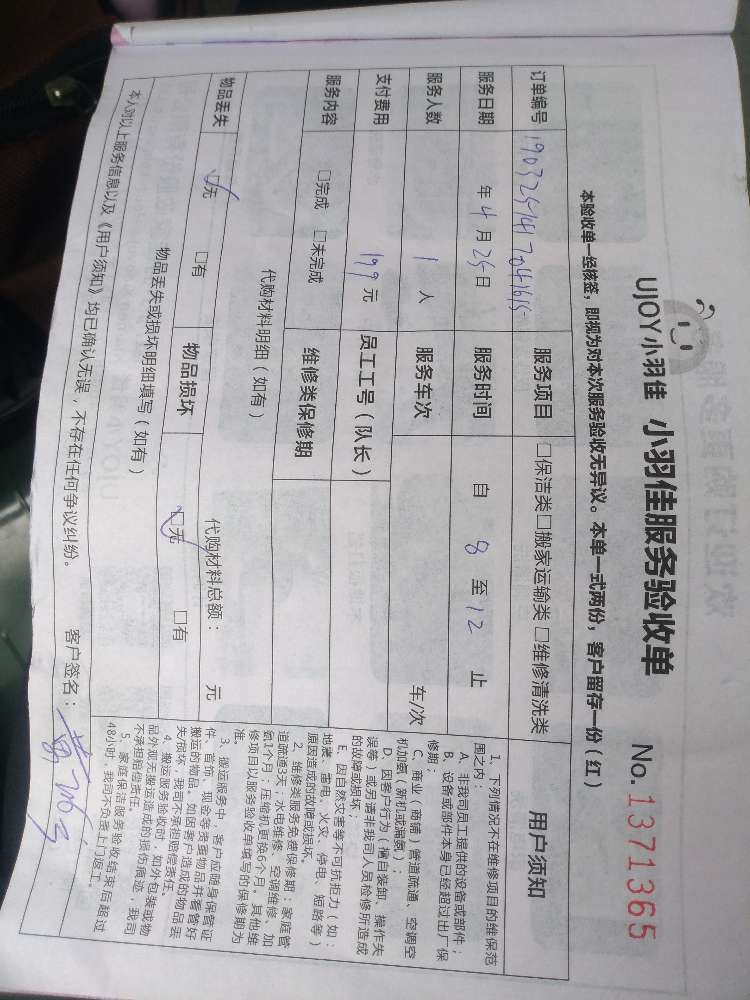 UJOY小羽佳 小羽佳服务验收单 No.1371365
本验收单一经核签，即视为对本次服务验收无异议。本单一式两份，客户留存一份（红）
订单编号 1903251417041615 服务项目 □保洁类□搬家运输类□维修清洗类
服务日期 年4月25日 服务时间 自 8 至 12 止
服务人数 1 人 服务车次 车/次
支付费用 199 元 员工工号（队长）
服务内容 □完成 □未完成 维修类保修期
代购材料明细（如有） 代购材料总额： 元
物品丢失 □无 □有 物品损坏 □无 □有
物品丢失或损坏明细填写（如有）
本人对以上服务信息以及《用户须知》均已确认无误，不存在任何争议纠纷。 客户签名：
用户须知
1、下列情况不在维修项目的维保范
围之内：
A、非我司员工提供的设备或部件；
B、设备或部件本身已经超过出厂保
修期；
C、商业（商铺）管道疏通、空调空
机加氟（新机或漏氟）；
D、因客户行为（擅自装卸、操作失
误等）或另请非我司人员检修所造成
的故障或损坏；
E、因自然灾害等不可抗拒力（如：
地震、雷电、火灾、停电、短路等）
原因造成的故障或损坏。
2、维修类服务免费保修期：家庭管
道疏通3天；水电维修、空调维修、加
氟1个月；压缩机更换6个月。其他维
修项目以服务验收单填写的保修期为
准。
3、搬运服务中，客户应随身保管证
件、首饰、现金等贵重物品并看管好
搬运的物品。如因客户造成的物品丢
失/损坏，我司不承担赔偿责任。
4、搬运服务验收时，如外包装或物
品外观无搬运造成的损伤痕迹，我司
不承担赔偿责任。
5、家庭保洁服务验收结束后超过
48小时，我司不负责上门返工。